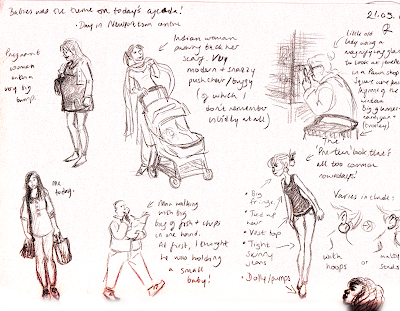 Babies was the theme on today's agenda!
· Day in Newport town centre
21.09.
Pregnant
woman
with a
very big
bump.
Indian woman
throwing back her
scarf. Very
modern + snazzy
pushchair/buggy
(of which I
don't remember
vividly at all)
little old
lady using a
magnifying glass
to look at jewellery
in a Pawn shop
window.
Big glasses
cardigan +
trolley)
The
'Pre-teen' look that's
all too common
nowadays!
me
today.
Man walking
with big
bag of fish + chips
in one hand.
At first, I thought
he was holding
a small
baby!
• Big
fringe
• Tied up
hair
• Vest top
• Tight
skinny
jeans
• Dolly/pumps
Varies include:
or
with
hoops or
studs